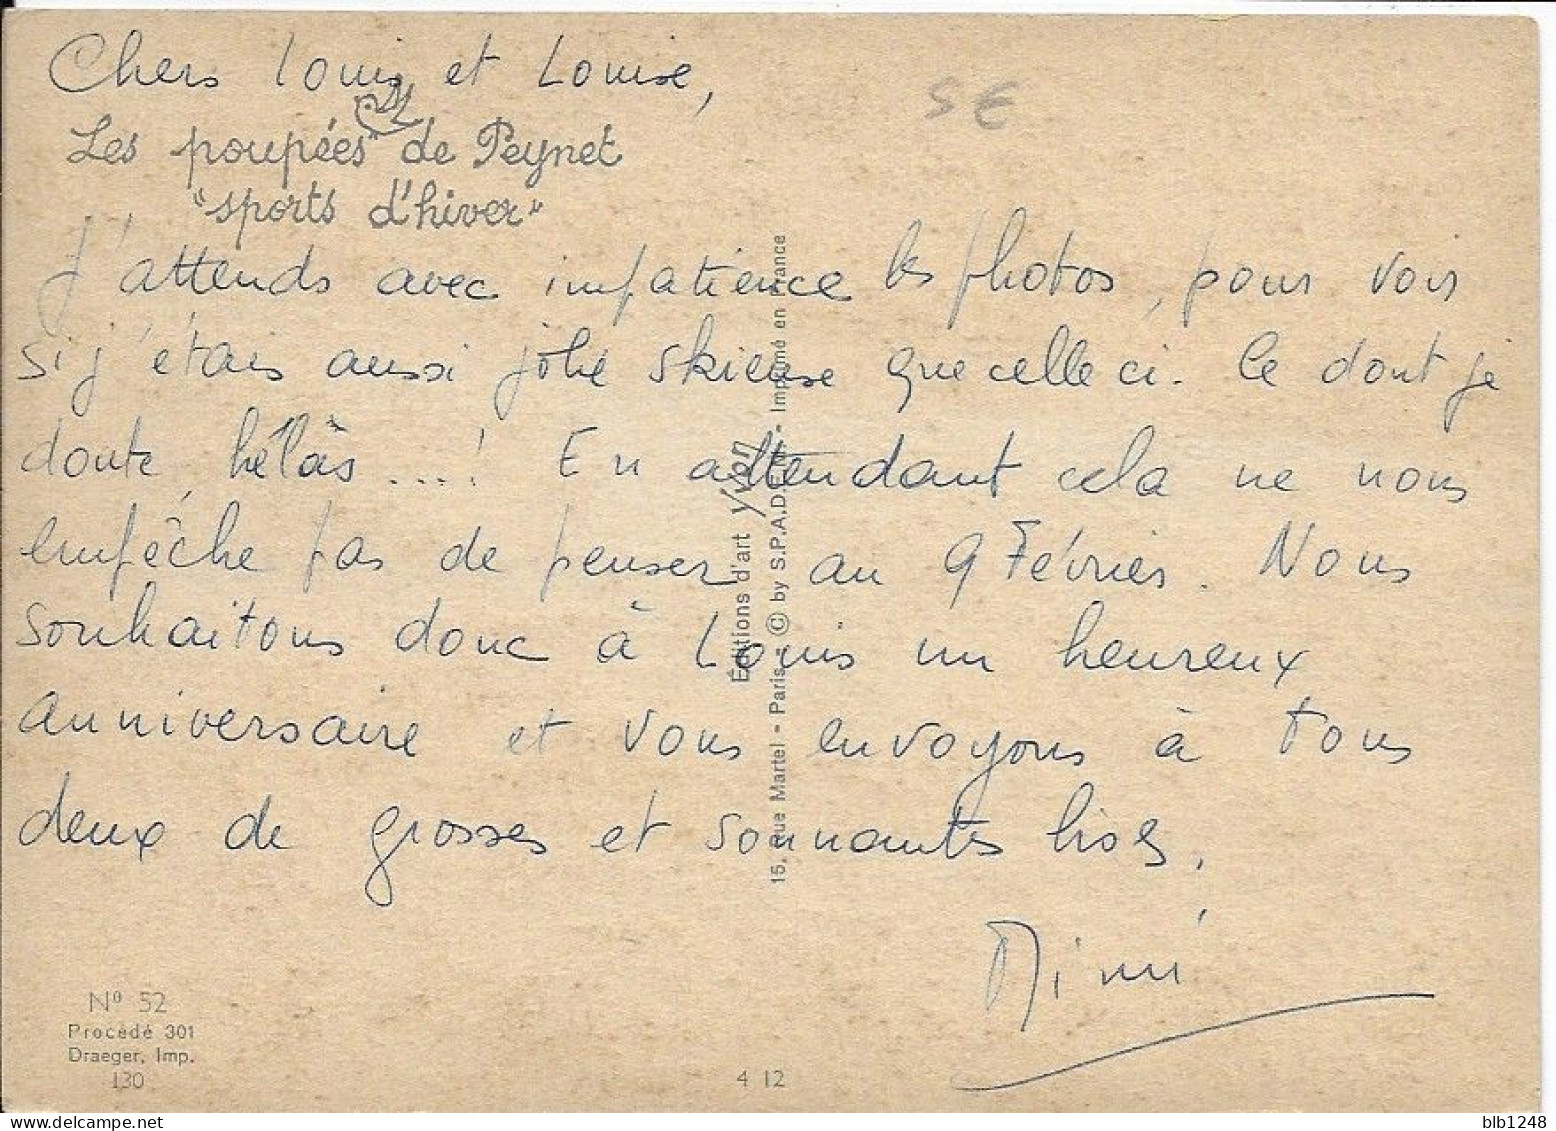 Chers Louis et Louise,
5 €
Les poupées de Peynet
"sports d'hiver"
J'attends avec impatience les photos, pour voir
si j'étais aussi jolie skieuse que celle ci. Ce dont je
doute, hélàs ....! En attendant cela ne nous
empêche pas de penser au 9 Février. Nous
souhaitons donc à Louis un heureux
anniversaire et vous envoyons à tous
deux de grosses et sonnantes bises.
Mimi
Éditions d'art Yvon
15, Rue Martel - Paris - © by S.P.A.D.E.M. - Imprimé en France
Nº 52
Procédé 301
Draeger, Imp.
130
4 12
blb1248